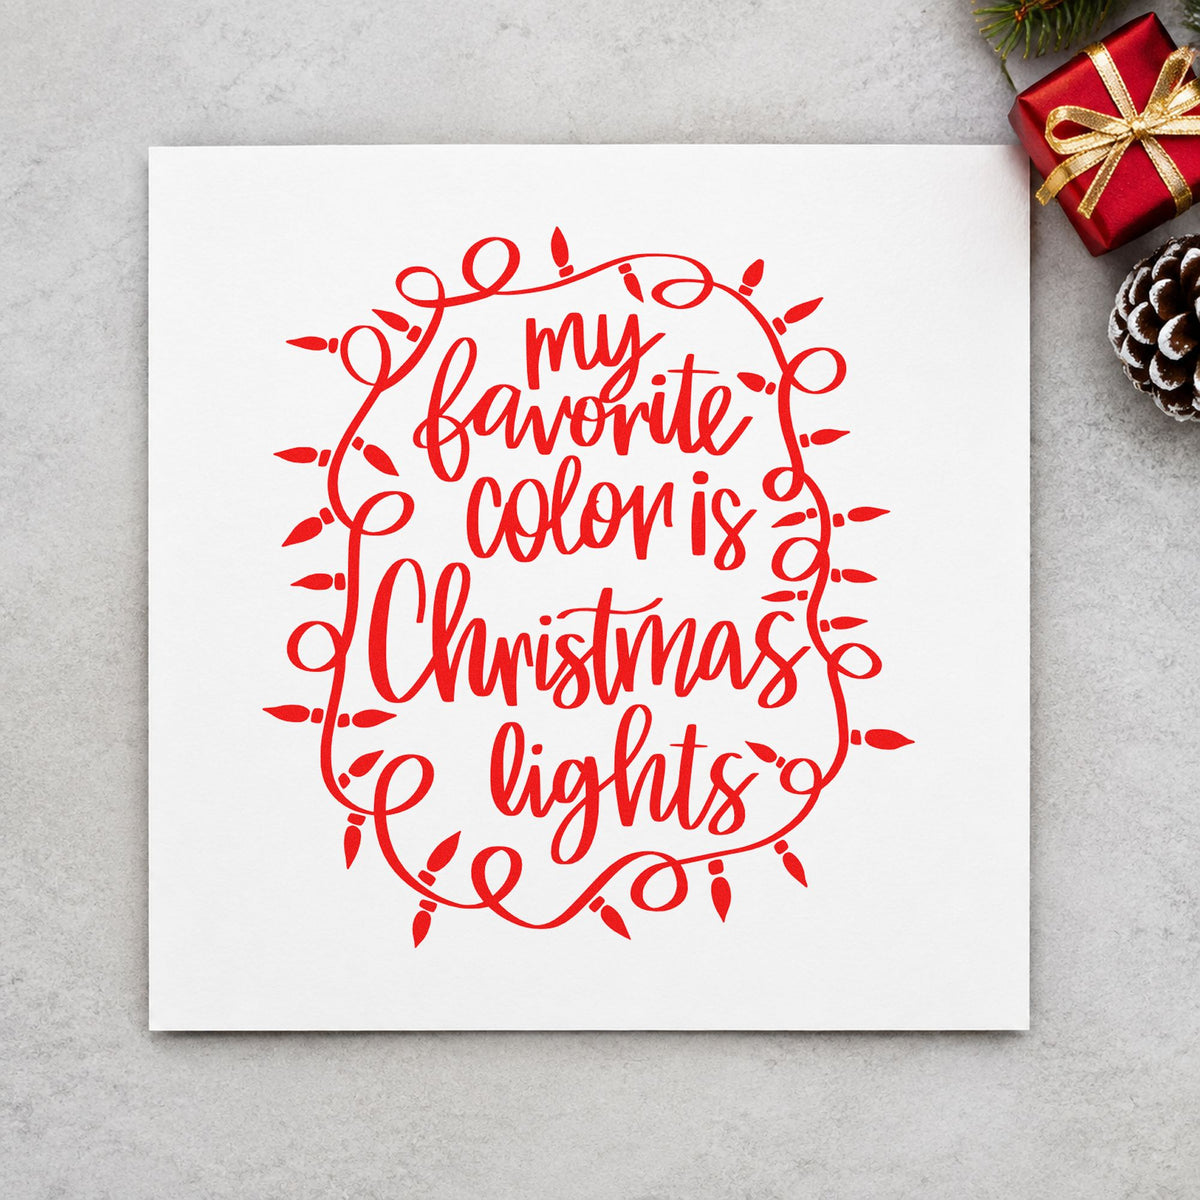 my
favorite
color is
Christmas
lights